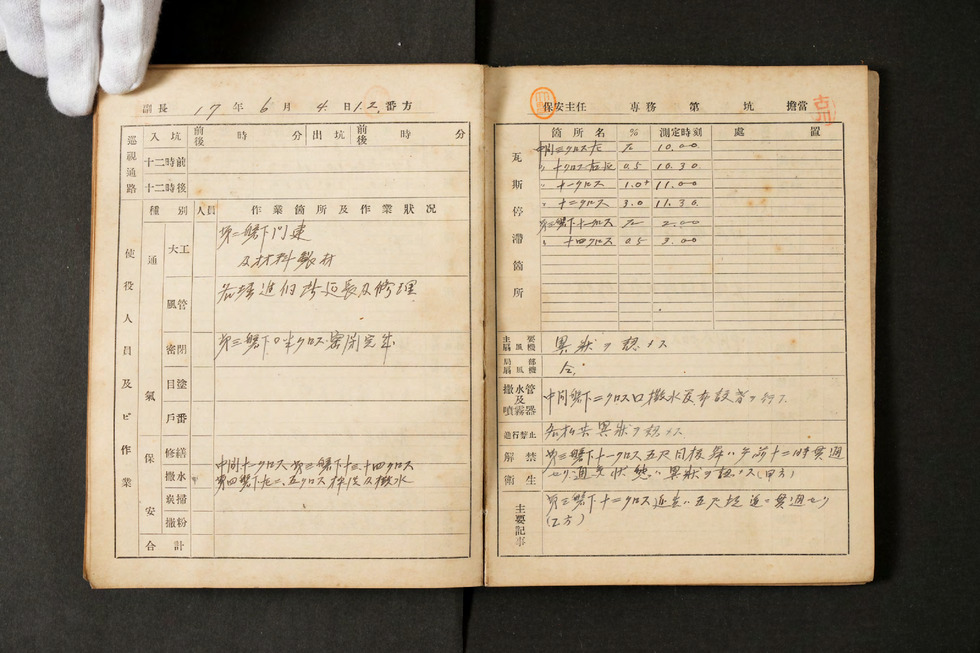 副長 17年6月4日1.2番方
巡視通路
入坑 前後 時 分 出坑 前後 時 分
十二時前
十二時後
使役人員及ビ作業
種別 人員 作業箇所及作業狀况
通氣
大工 第二盤下門建
及材料取材
風管 各増進個所延長及修理
密閉 第三盤下0半クロス密閉完本
目塗
戶番
保安
修繕 中間十一クロス 第三盤下十三、十四クロス
撒水 第四盤下左二、五クロス 及撒水
炭掃
撒粉
合計
保安主任 專務 第 坑 擔當 古川
瓦斯停滯箇所
箇所名 % 測定時刻 處置
中間三クロス左 10.00
〃 十クロス右 0.5 10.30
〃 十一クロス 1.0+ 11.00
〃 十二クロス 3.0 11.30
第三盤下十一クロス 2.00
〃 十四クロス 0.5 3.00
主要扇風機 異狀ヲ認メス
局部扇風機 仝
撒水管及噴霧器 中間盤下二クロス口撒水 設替ヲ行フ
進行禁止 異狀ヲ認メス
解禁 第三盤下十一クロス五尺 昇ハ午前十二時貫通
衛生 セリ通気状態ハ異狀ヲ認メス(甲方)
主要記事 第三盤下十二クロス ハ五尺 ニ貫通セリ
(乙方)